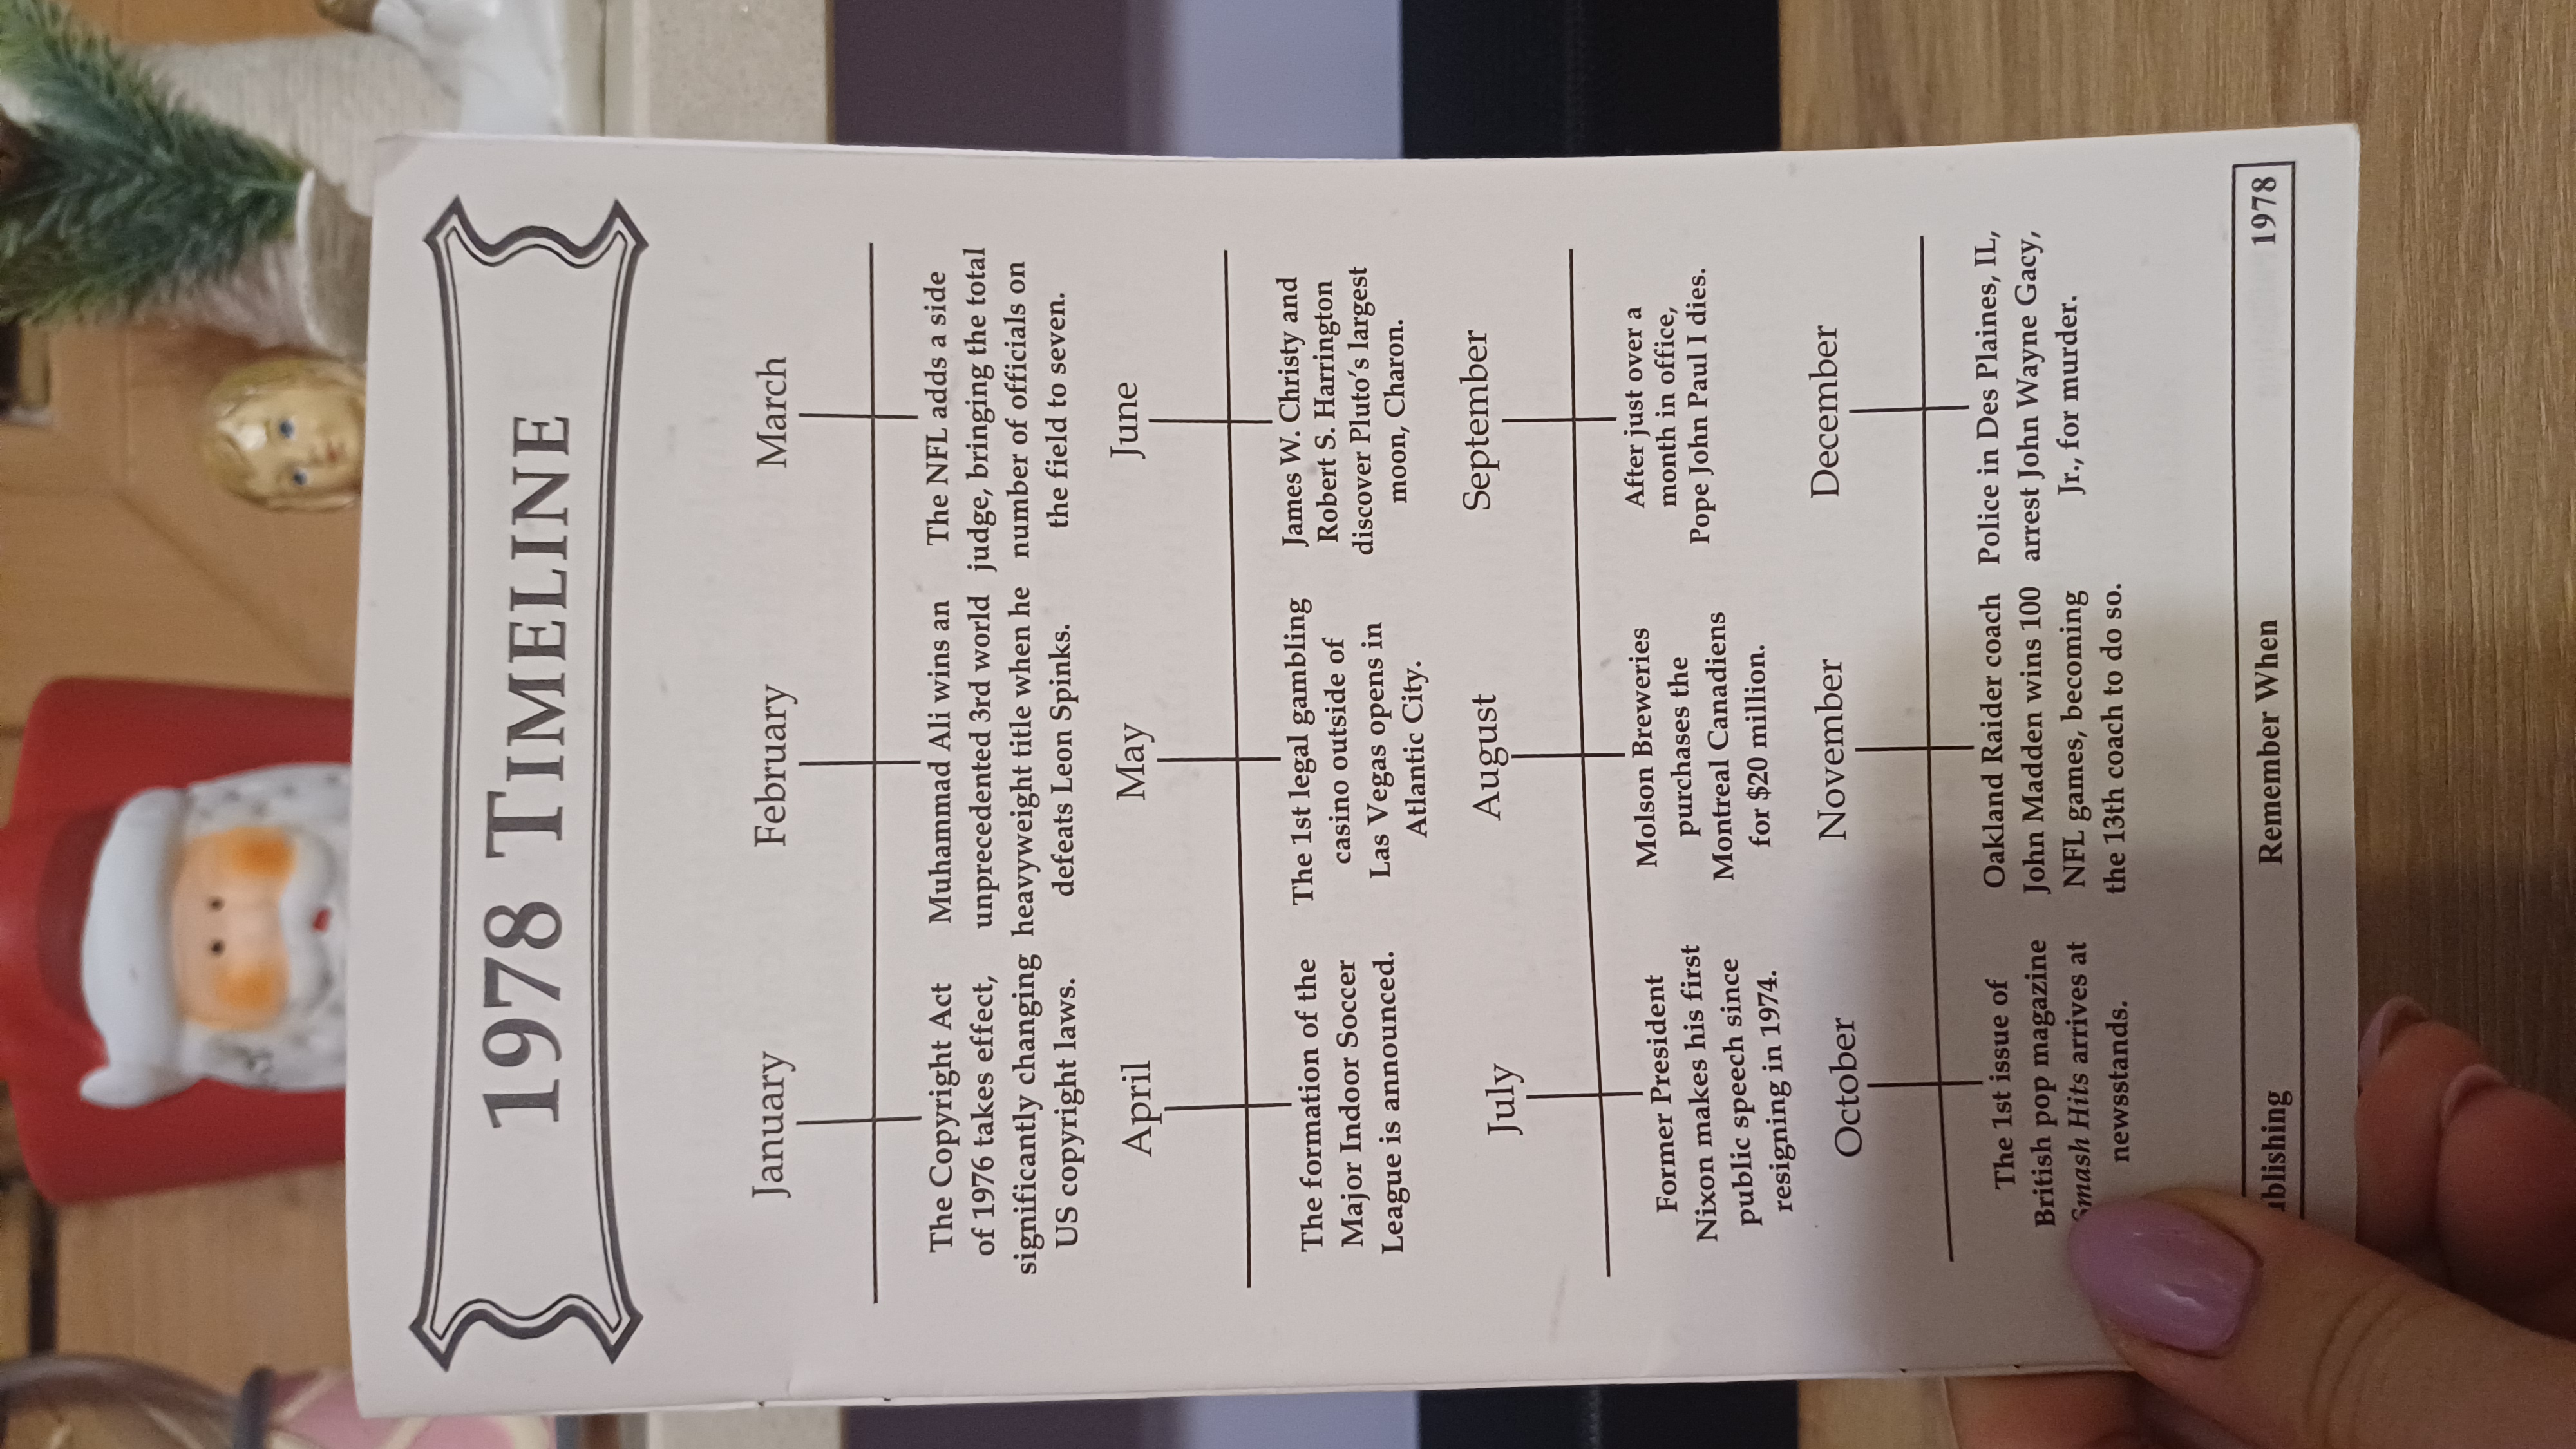 1978 TIMELINE
January
February
March
The Copyright Act
of 1976 takes effect,
significantly changing
US copyright laws.
Muhammad Ali wins an
unprecedented 3rd world
heavyweight title when he
defeats Leon Spinks.
The NFL adds a side
judge, bringing the total
number of officials on
the field to seven.
April
May
June
The formation of the
Major Indoor Soccer
League is announced.
The 1st legal gambling
casino outside of
Las Vegas opens in
Atlantic City.
James W. Christy and
Robert S. Harrington
discover Pluto's largest
moon, Charon.
July
August
September
Former President
Nixon makes his first
public speech since
resigning in 1974.
Molson Breweries
purchases the
Montreal Canadiens
for $20 million.
After just over a
month in office,
Pope John Paul I dies.
October
November
December
The 1st issue of
British pop magazine
Smash Hits arrives at
newsstands.
Oakland Raider coach
John Madden wins 100
NFL games, becoming
the 13th coach to do so.
Police in Des Plaines, IL,
arrest John Wayne Gacy,
Jr., for murder.
ublishing Remember When 1978